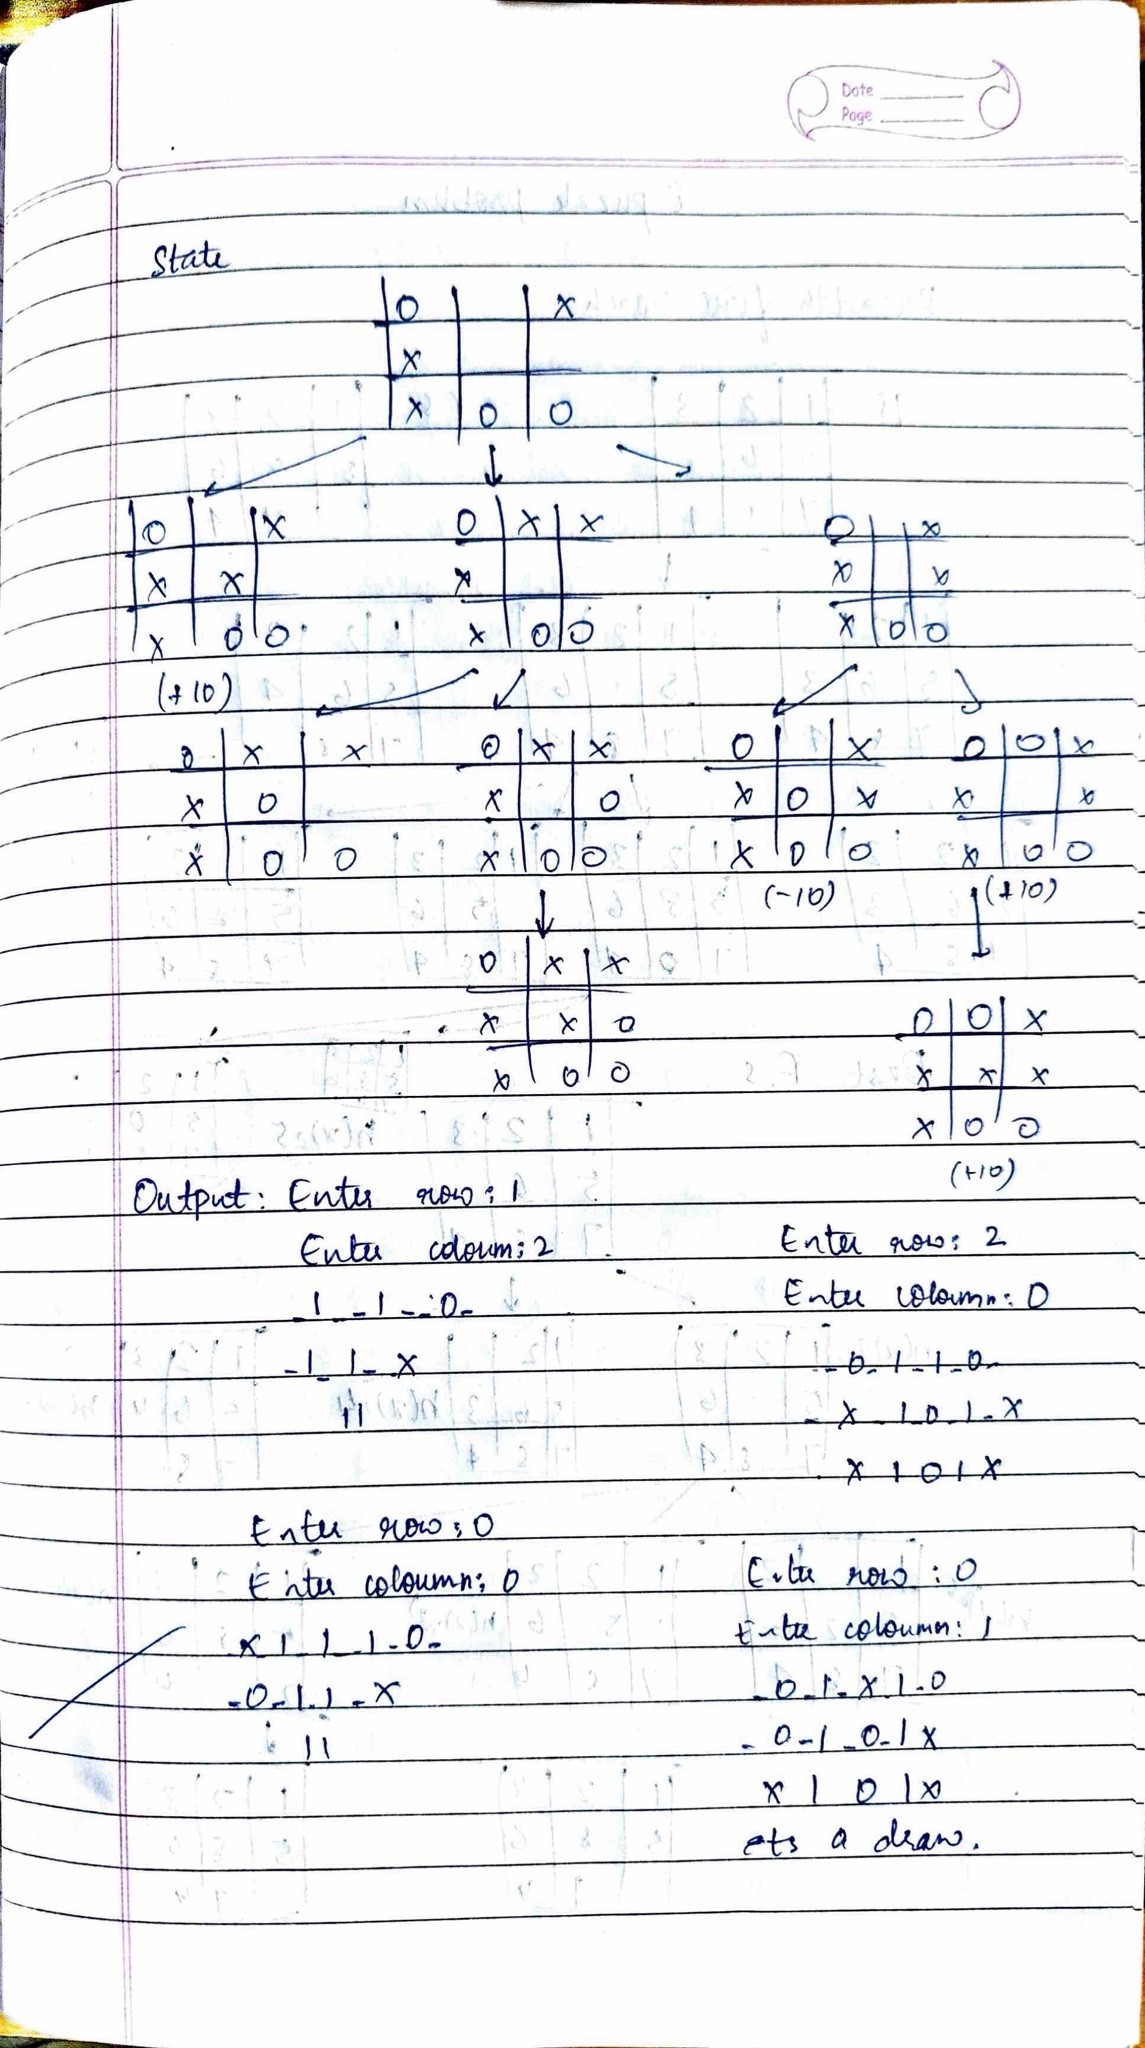 Date
Page
State
O | | X
X | |
X | O | O
O | | X
X | X |
X | O | O
(+10)
O | X | X
X | |
X | O | O
O | | X
X | | X
X | O | O
O | X | X
X | O |
X | O | O
O | X | X
X | | O
X | O | O
O | | X
X | O | X
X | O | O
(-10)
O | O | X
X | | X
X | O | O
(+10)
O | X | X
X | X | O
X | O | O
O | O | X
X | X | X
X | O | O
(+10)
Output: Enter row: 1
Enter coloum: 2
_ | _ _ | _ _ O _
_ | _ | _ X
| |
Enter row: 2
Enter coloumn: 0
_ O _ | _ | _ O _
_ X _ | O | _ X
X | O | X
Enter row: 0
Enter coloumn: 0
X | _ | _ | _ O _
_ O _ | _ | _ X
| |
Enter row : 0
Enter coloumn: 1
_ O _ | _ X | O
_ O _ | _ O _ | X
X | O | X
ets a draw.